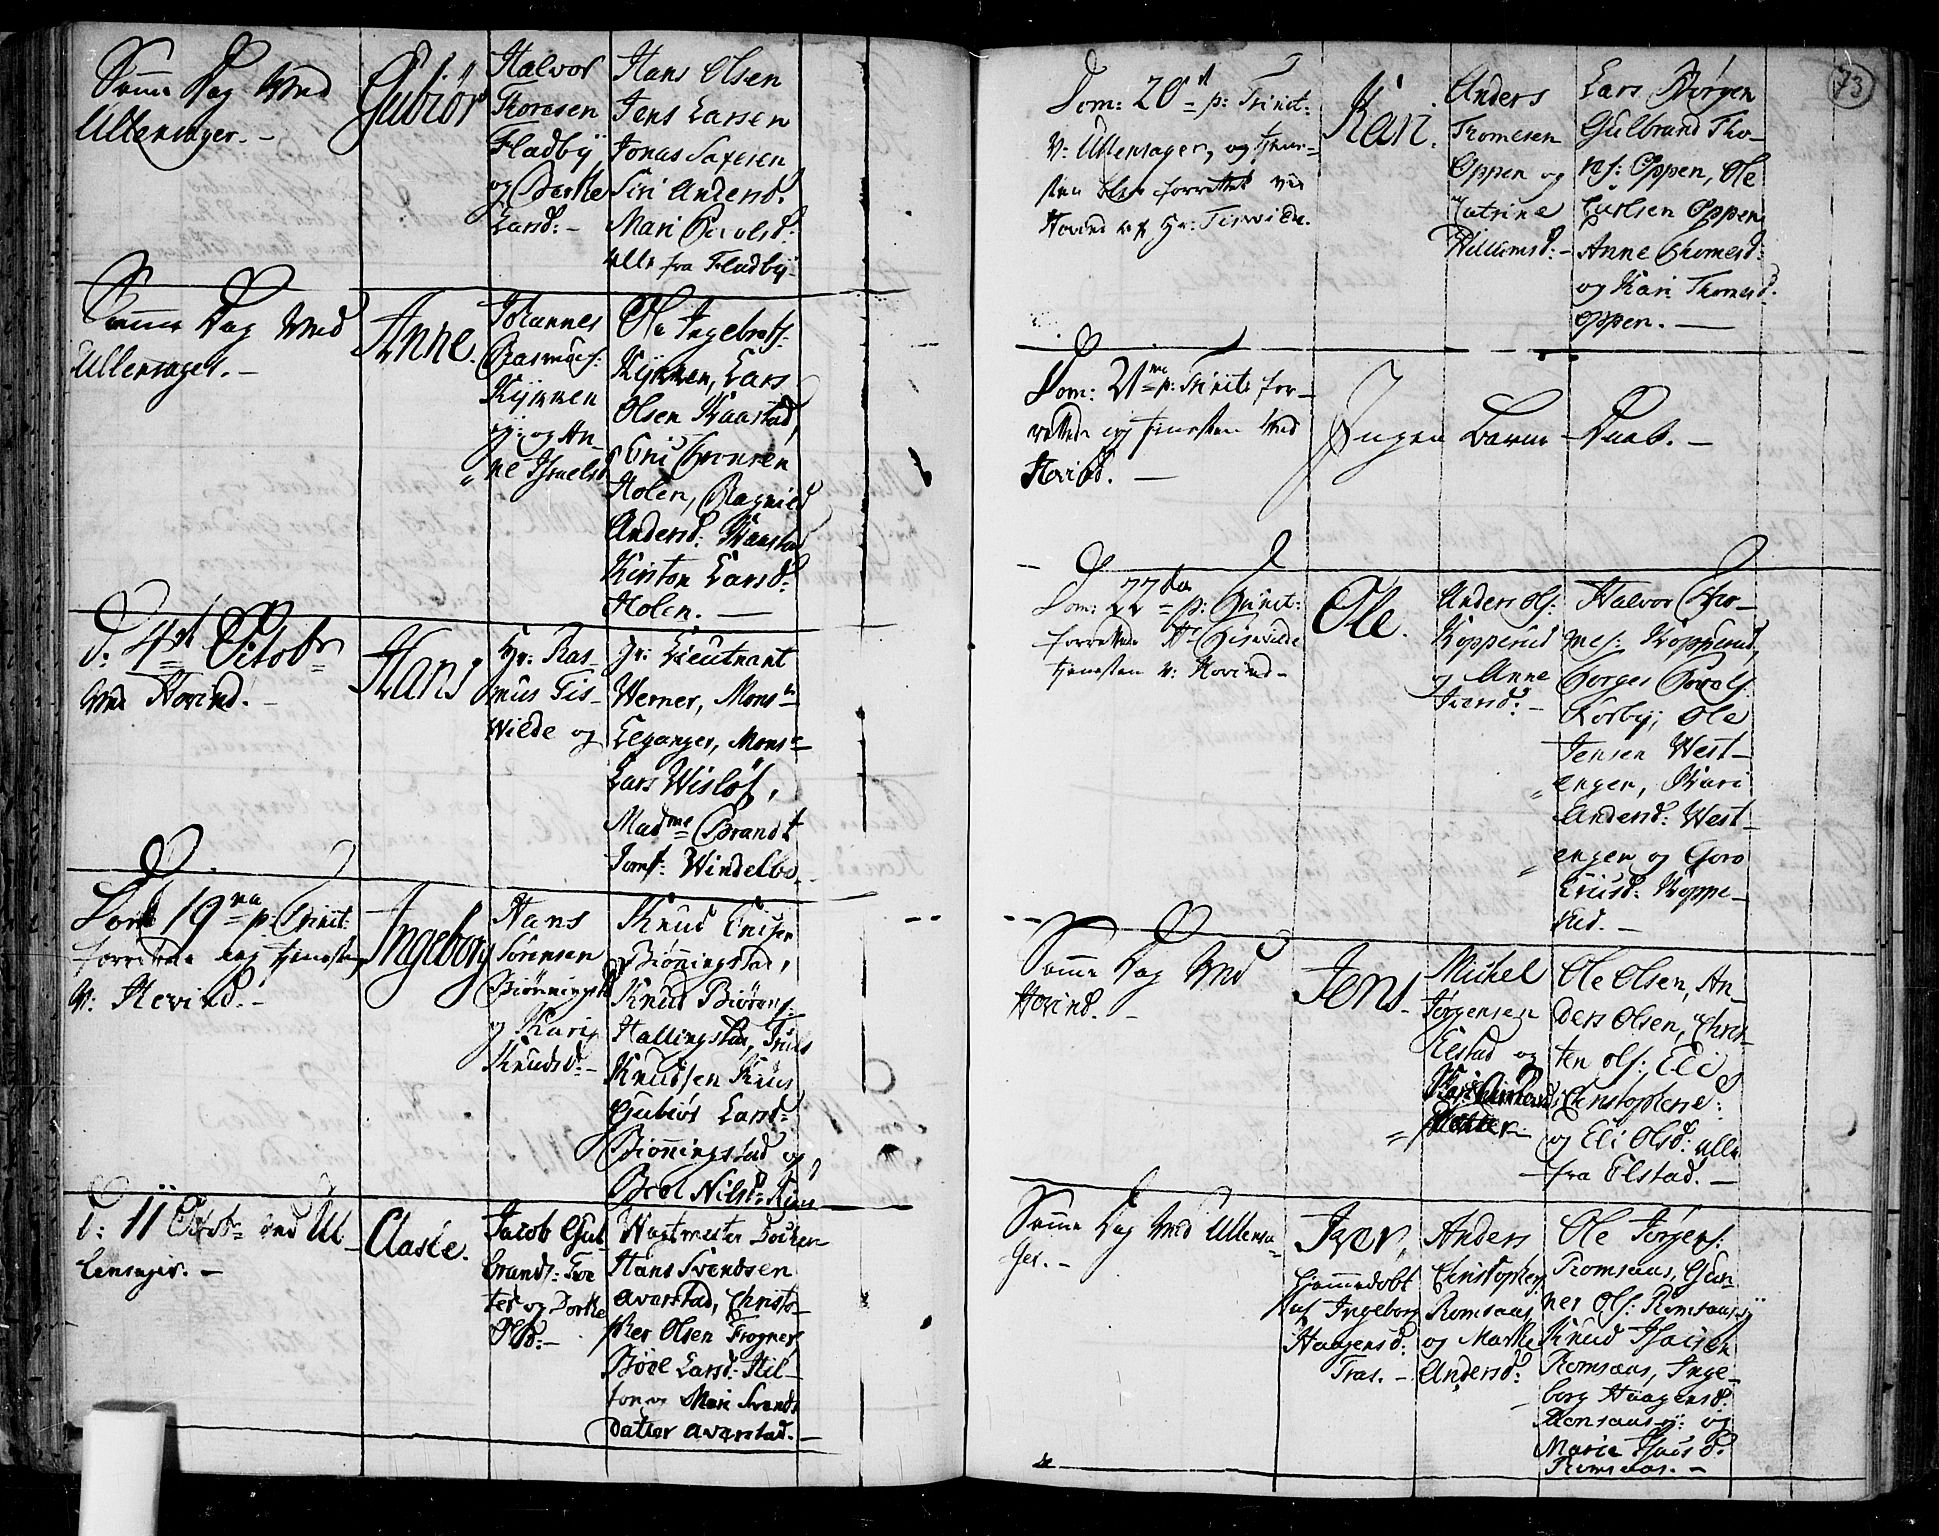 Samme Dag ved
Ullensager. -
Gubiør
Halvor
Thoresen
Fladby
og Dorthe
Larsd: -
Hans Olsen
Jens Larsen
Jonas Saxesen
Siri Andersd.
Mari Povelsd:
alle fra Fladby -
Samme Dag ved
Ullensager. -
Anne.
Johannes
Rasmusf:
Kynnen
og An-
ne Israelsd
Ole Ingebretf:
Kynnen, Lars
Olsen Kaarstad,
Holen, Ragnild
Andersd: Kaarstad
Kirsten Larsd:
Holen. -
d: 4de Octobr
ved Hovind. -
Hans
Hr: Ras-
mus Tis-
vilde og
Hr: Lieutnant
Werner, Monsr
Leganger, Monsr
Lars Wisløf,
Madme Brandt
Jomf: Windelbo
Dom 19na p: Trinit:
forrettede jeg tjenesten
v: Hovind. -
Ingeborg
Hans
Sørensen
Biønningst
og Kari
Knudsd: -
Knud
Biønningstad,
Knud Biørnf:
Hallingstad, Truls
Knudsen Kius
Gubiør Larsd:
Biønningstad og
Berl Nilsd: Kius
d: 11 Octobr ved Ul-
lensager. -
Clasie.
Jacob Gul-
brandf: Tve-
ter og Dorthe
Olsd: -
Wagtmester
Hans Svendsen
Averstad, Christo-
pher Olsen Frogner,
Børe Larsd: Hil-
ton og Mari Svends
datter Averstad. -
73
Dom: 20de p: Trinit:
v: Ullensager, og tjene-
sten blev forrettet ved
Hovind af Hr: Tisvilde.
Kari.
Anders
Thomesen
Oppen og
Catrine
Willumsd: -
Lars Børgen
Gulbrand Tho-
mf: Oppen, Ole
Carlsen Oppen,
Anne Thomesd:
og Kari Thomesd.
Oppen. -
Dom: 21me p: Trinit: for-
rettede jeg tjenesten ved
Hovind. -
Ingen Barne - Daab. -
Dom: 22den p: Trinit:
forrettede Hr Tisvilde
tjenesten v: Hovind -
Ole.
Anders Olf:
Kopperud
og Anne
Iversd: -
Halvor Tho-
mef: Kopperud,
Torger Povelf:
Lørby, Ole
Jensen West-
engen, Kari
Andersd: West-
engen og Goro
Koppe-
rud. -
Samme Dag ved
Hovind. -
Jens.
Michel
Jørgensen
Elstad og
Ole Olsen, An-
ders Olsen, Chris-
ten Olf: Eli
Christophersd:
og Eli Olsd: alle
fra Elstad. -
Samme Dag ved Ullensa-
ger. -
Iver,
hjemmedøbt
af Ingeborg
Haagensd:
Tras. -
Anders
Christopherf:
Romsaas
og Marthe
Andersd:
Ole Jørgenf:
Romsaas, Gun-
ner Olf: Romsaas,
Knud
Romsaas, Inge-
borg Haagensd:
Romsaas og
Marie
Romsaas. -